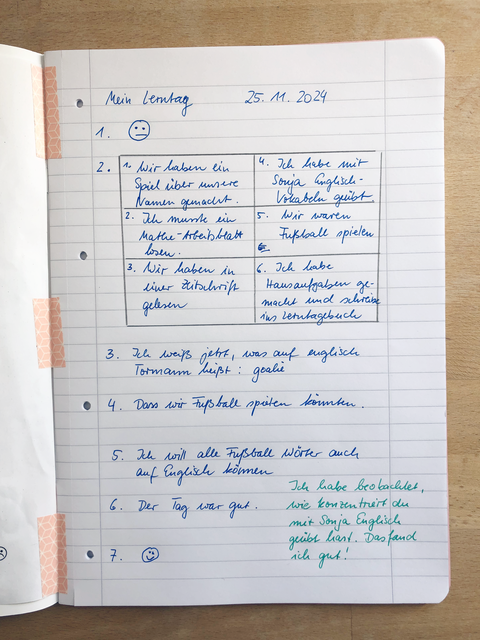 Mein Lerntag 25. 11. 2024
1.
2.
1. Wir haben ein
Spiel über unsere
Namen gemacht.
4. Ich habe mit
Sonja Englisch-
Vokabeln geübt.
2. Ich musste ein
Mathe-Arbeitsblatt
lösen.
5. Wir waren
Fußball spielen
3. Wir haben in
einer Zeitschrift
gelesen
6. Ich habe
Hausaufgaben ge-
macht und schreibe
ins Lerntagebuch
3. Ich weiß jetzt, was auf englisch
Tormann heißt: goalie
4. Dass wir Fußball spielen konnten.
5. Ich will alle Fußball Wörter auch
auf Englisch können
6. Der Tag war gut.
7.
Ich habe beobachtet,
wie konzentriert du
mit Sonja Englisch
geübt hast. Das fand
ich gut!